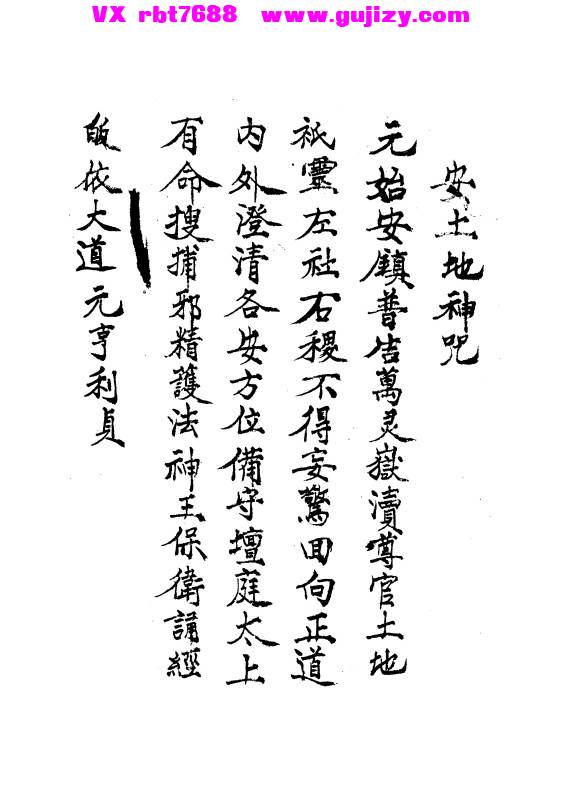 VX rbt7688 www.gujizy.com
安土地神咒
元始安鎮普告萬灵嶽瀆尊官土地
祇靈左社右稷不得妄驚回向正道
内外澄清各安方位備守壇庭太上
有命搜捕邪精護法神王保衛誦經
皈依大道元亨利貞